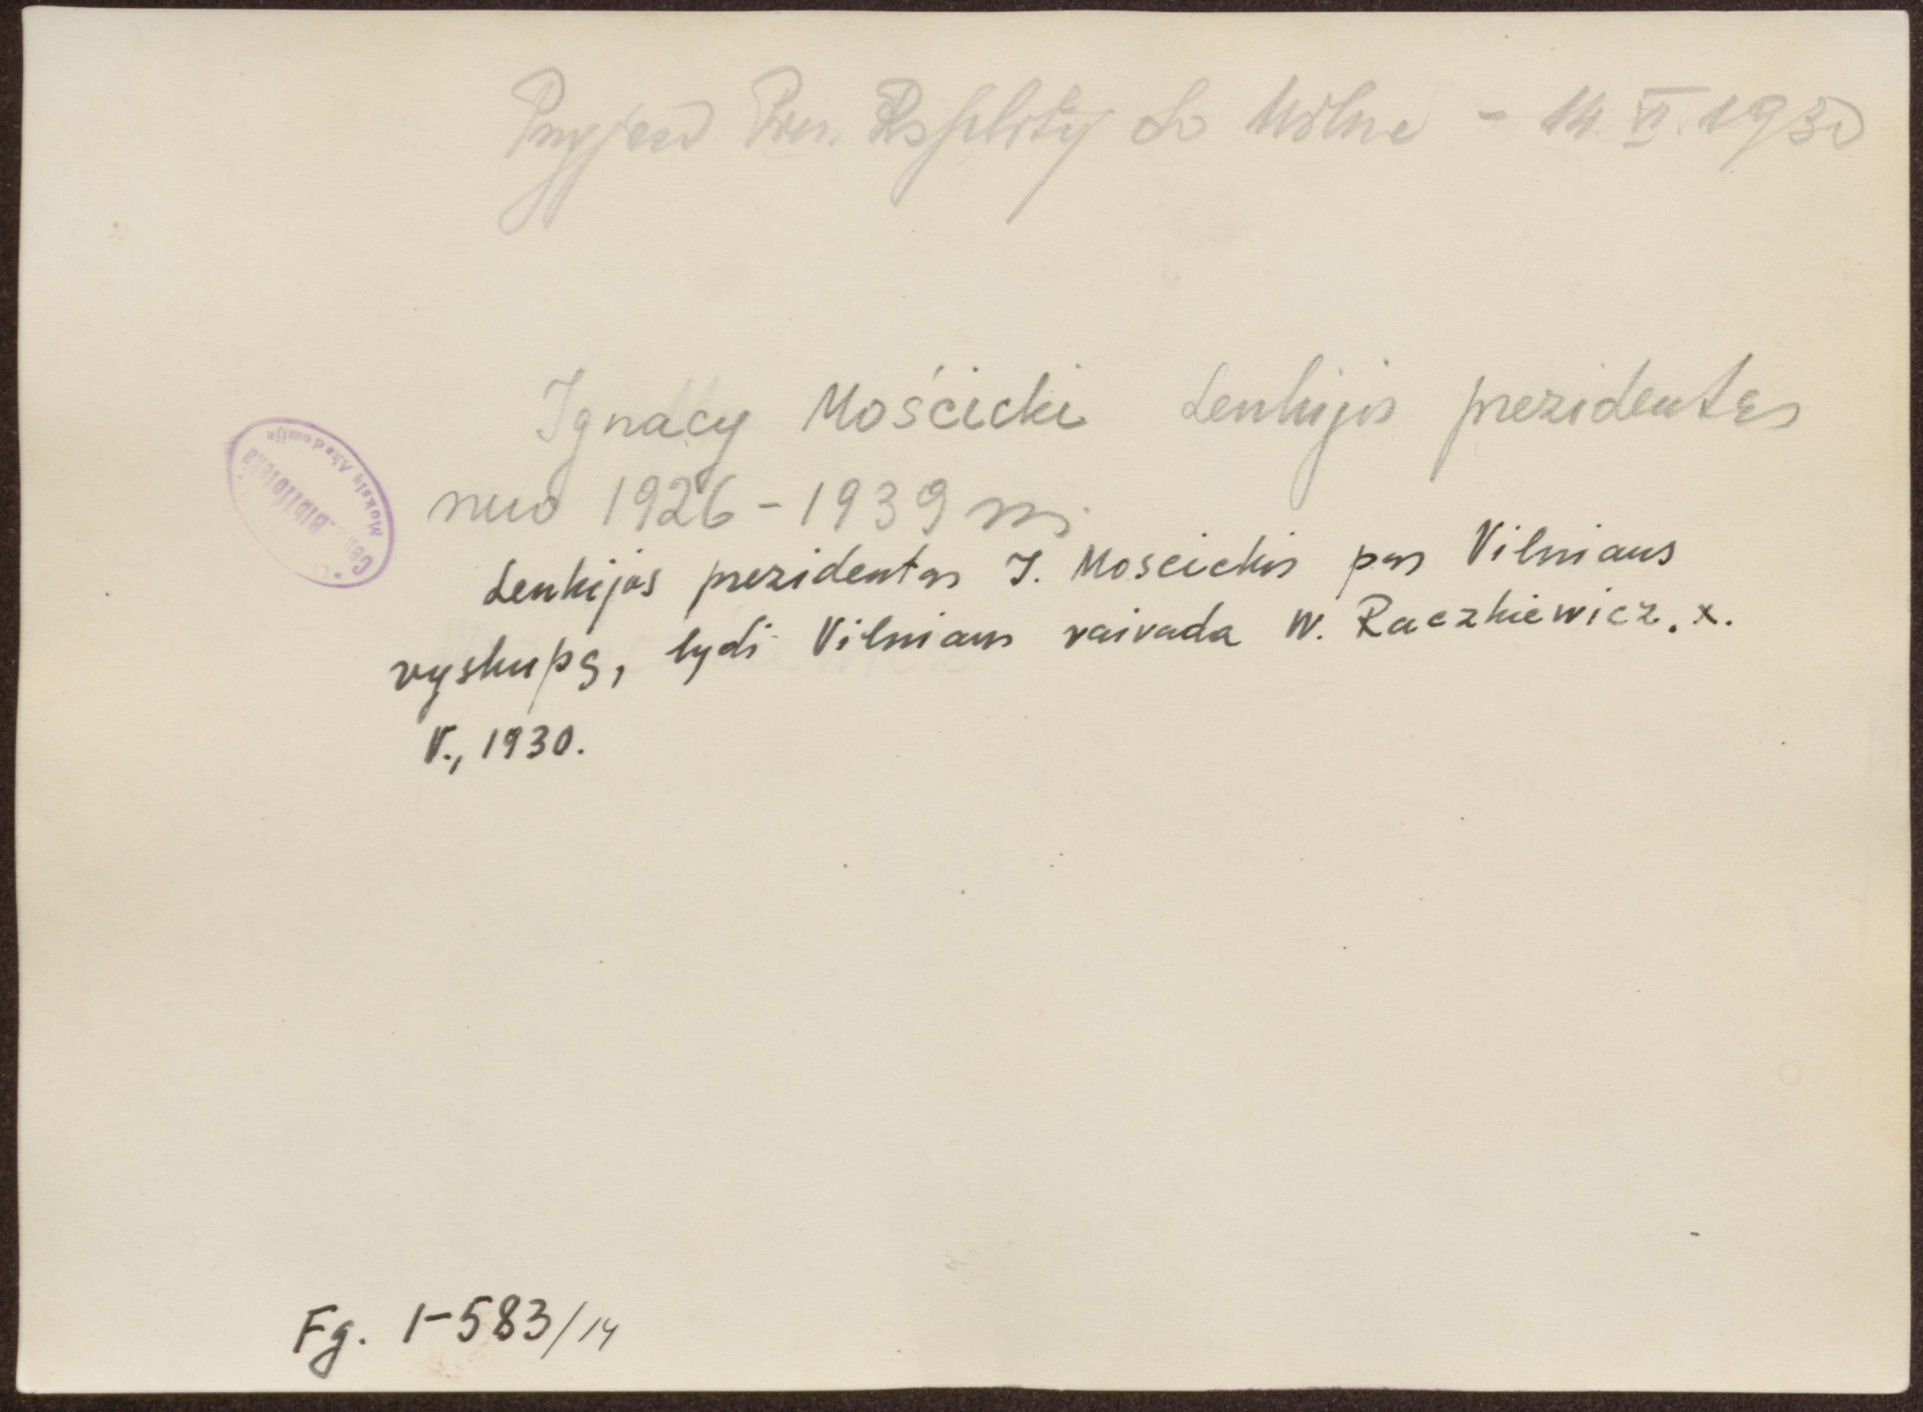 Przyjazd Prez. Rzplitej do Wilna - 14. VI. 1930
Ignacy Mościcki Lenkijos prezidentas
nuo 1926-1939 m.
Lenkijos prezidentas I. Moscickis pas Vilniaus
vyskupą, lydi Vilniaus vaivada W. Raczkiewicz. x.
V., 1930.
Mokslų Akademija
Biblioteka
Fg. 1-583/14